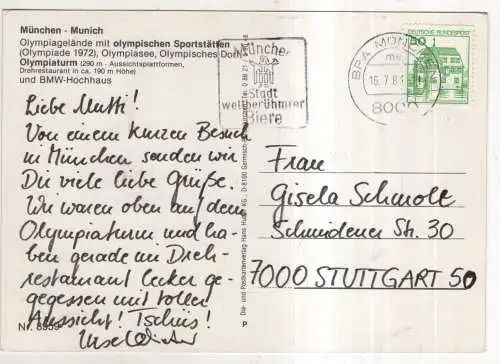 München - Munich
Olympiagelände mit olympischen Sportstätten
(Olympiade 1972), Olympiasee, Olympisches Dorf,
Olympiaturm (290 m - Aussichtsplattformen,
Drehrestaurant in ca. 190 m Höhe)
und BMW-Hochhaus
Liebe Mutti!
Von einem kurzen Besuch
in München senden wir
Dir viele liebe Grüße.
Wir waren oben auf dem
Olympiaturm und ha-
ben gerade im Dreh-
restaurant lecker ge-
gegessen mit toller
Aussicht! Tschüs!
Nr. 8959
Die- und Postkartenverlag Hans Huber KG, D-8100 Garmisch-
P
München
Stadt
weltberühmter
Biere
BPA MÜNCHEN
15.7.8
8000
DEUTSCHE BUNDESPOST
50
Frau
Gisela Schmolt
Schmidener Str. 30
7000 STUTTGART 50